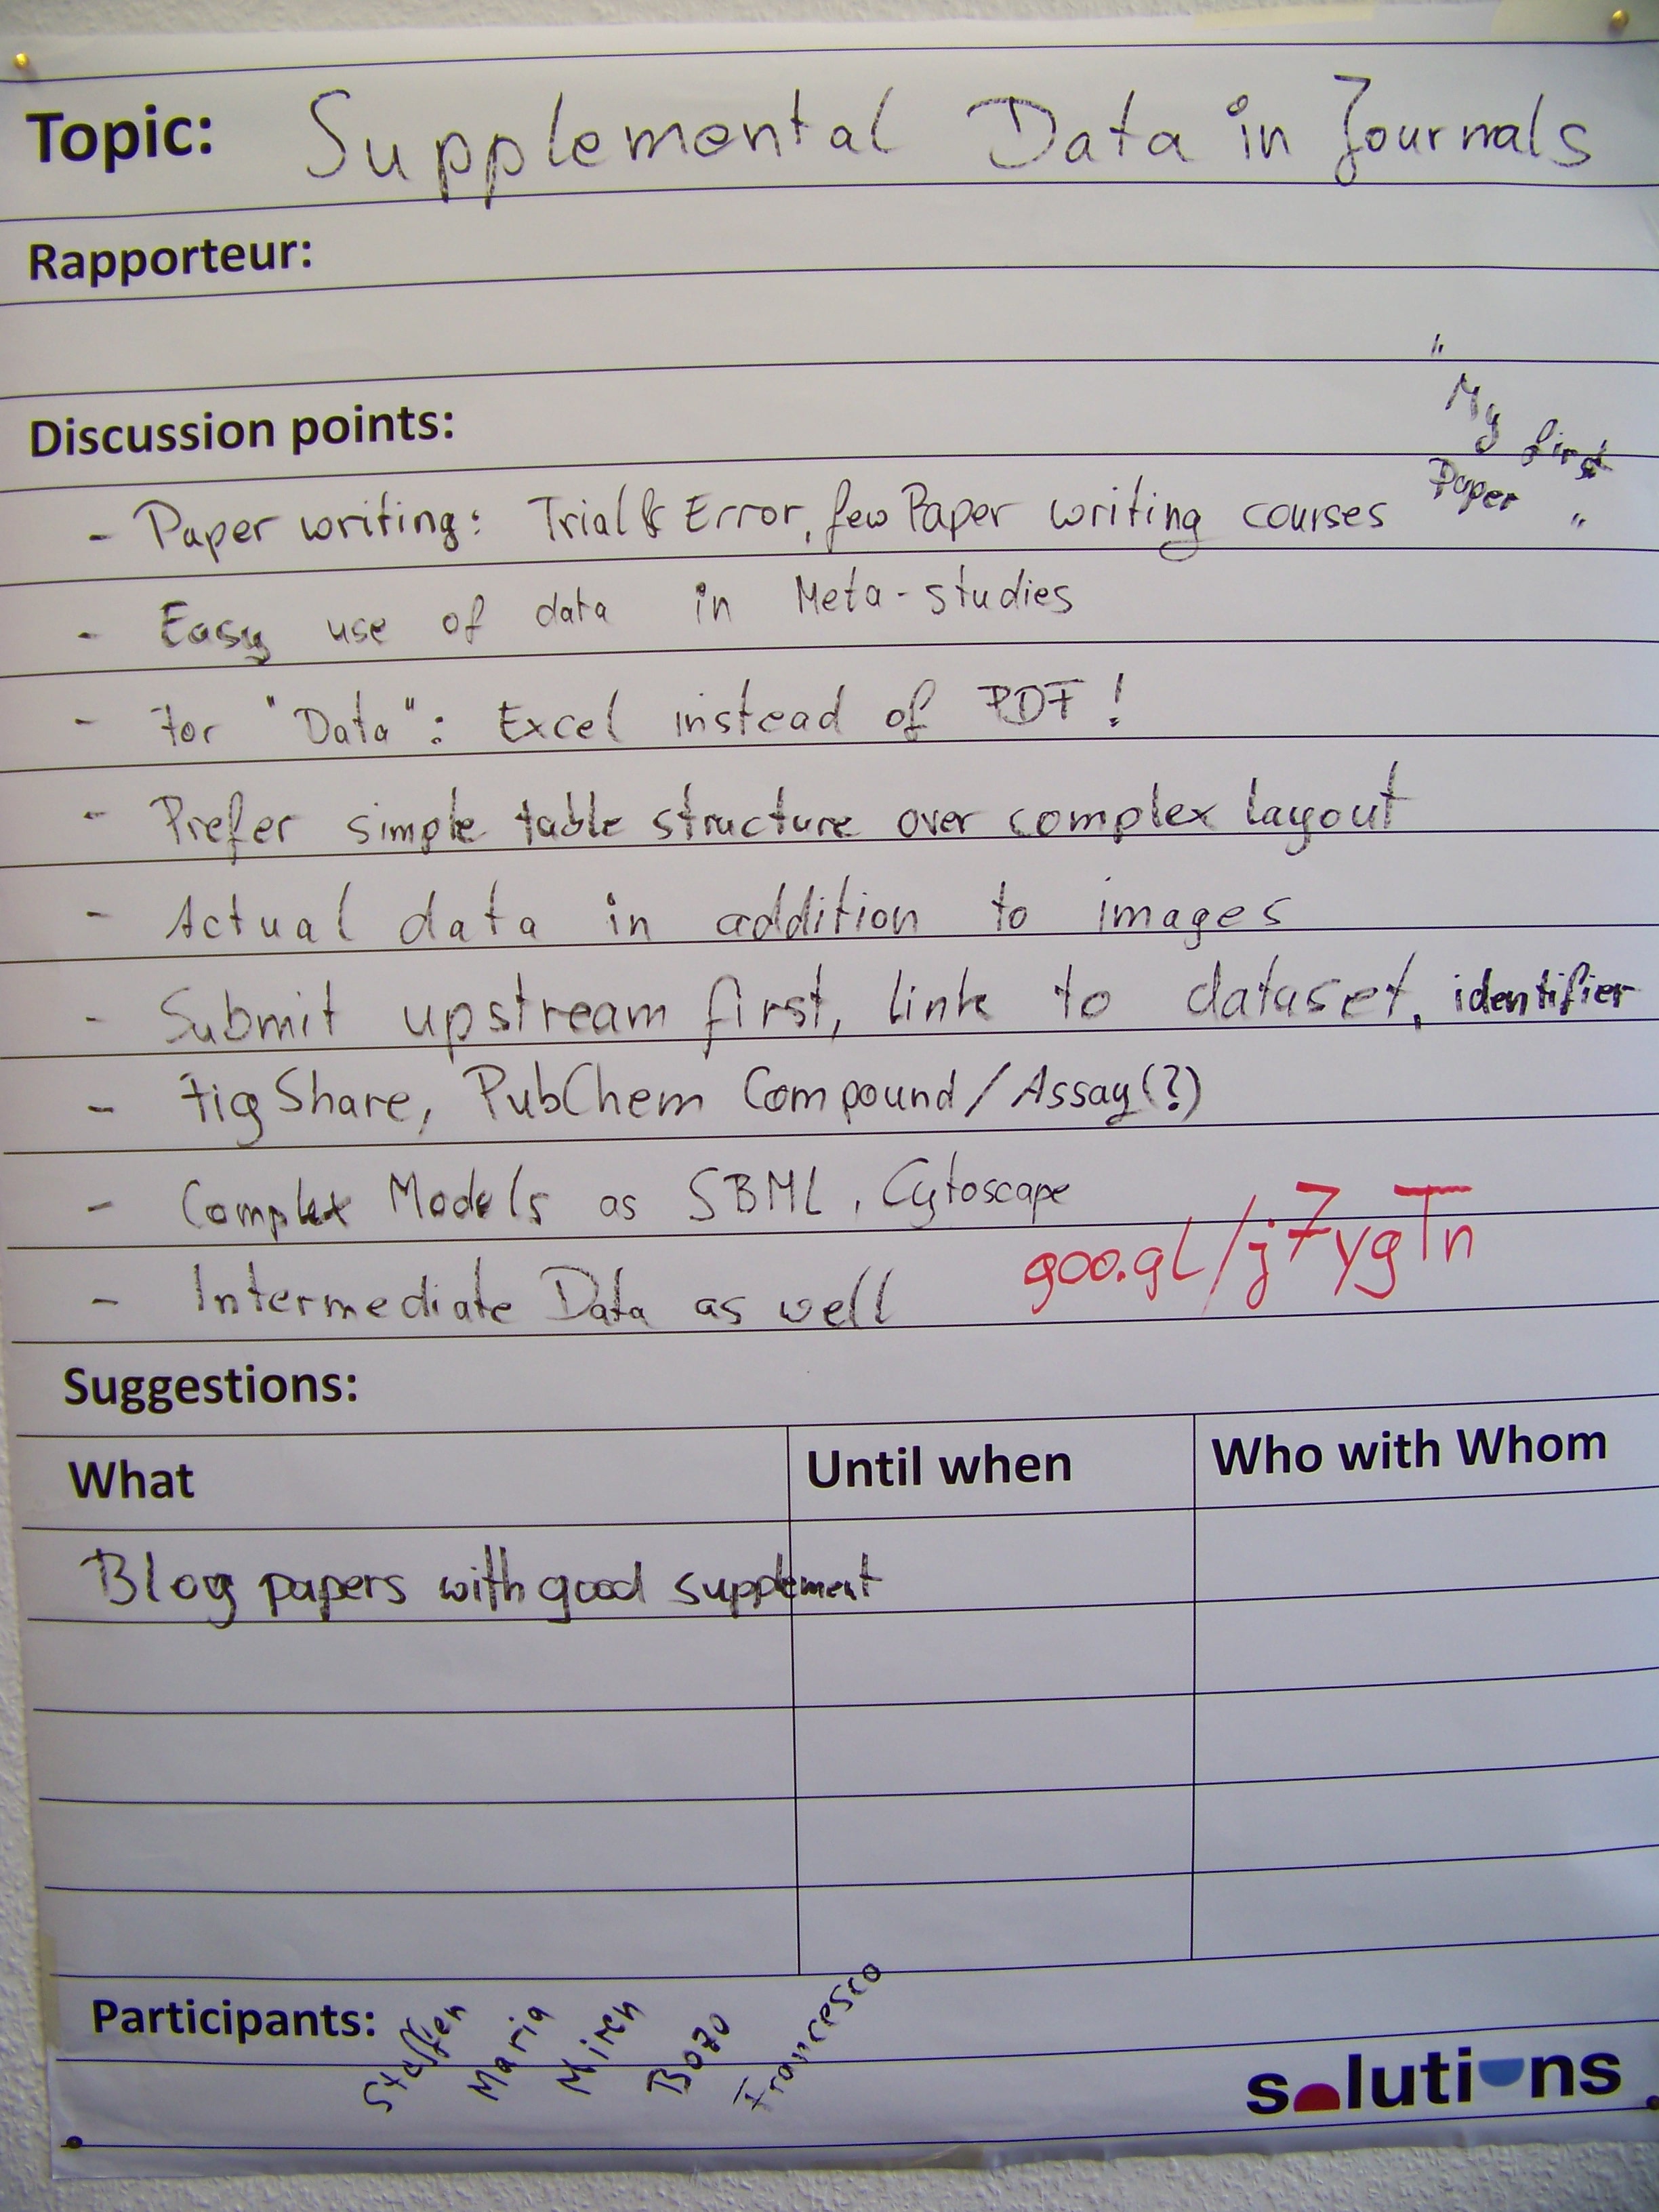 Topic: Supplemental Data in Journals
Rapporteur:
Discussion points:
"My first
Paper"
- Paper writing: Trial & Error, few Paper writing courses
- Easy use of data in Meta-studies
- For "Data": Excel instead of PDF!
- Prefer simple table structure over complex layout
- Actual data in addition to images
- Submit upstream first, link to dataset, identifier
- FigShare, PubChem Compound/Assay(?)
- Complex Models as SBML, Cytoscape
goo.gl/j7ygTn
- Intermediate Data as well
Suggestions:
What Until when Who with Whom
Blog papers with good supplement
Participants: Steffen Maria Miren Bozo Francesco
solutions